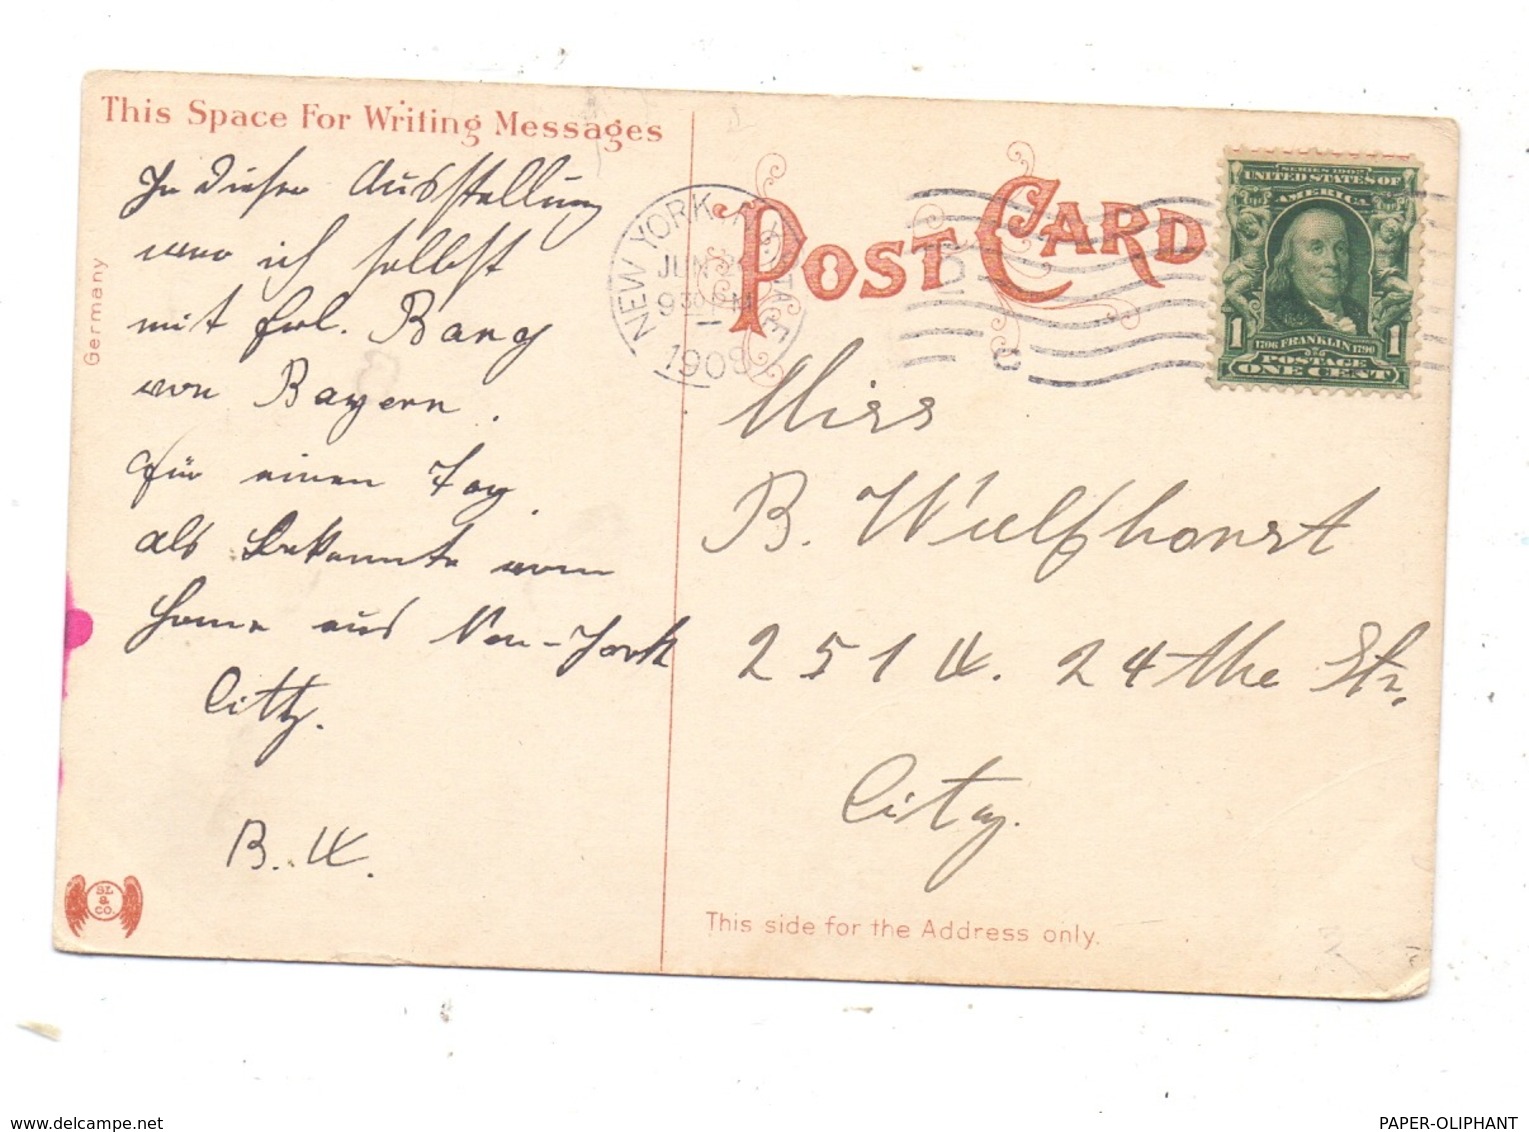 This Space For Writing Messages
In dieser Ausstellung
war ich selbst
mit Frl. Bang
von Bayern.
für einen Tag
als Bekannte vom
Home aus New-York
City.
B. W.
Germany
SL
&
CO.
POST CARD
NEW YORK, N.Y.
JUN 2
9 30 PM
1908
C
SERIES 1902
UNITED STATES OF
AMERICA
1 1
1706 FRANKLIN 1790
POSTAGE
ONE CENT
Miss
B. Wulfhorst
251 W. 24the Str.
City.
This side for the Address only.
www.delcampe.net
PAPER-OLIPHANT